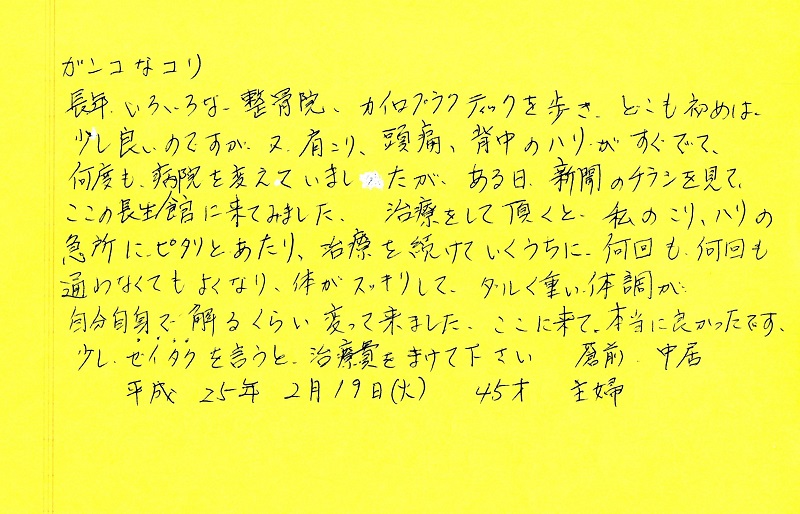 ガンコなコリ
長年、いろいろな整骨院、カイロプラクティックを歩き、どこも初めは、
少し良いのですが、又、肩こり、頭痛、背中のハリがすぐでて、
何度も、病院を変えていましたが、ある日、新聞のチラシを見て、
ここの長生館に来てみました。 治療をして頂くと、私のこり、ハリの
急所にピタリとあたり、治療を続けていくうちに、何回も、何回も
通わなくてもよくなり、体がスッキリして、ダルく重い体調が
自分自身で解るくらい変って来ました。ここに来て、本当に良かったです。
少し、ゼイタクを言うと、治療費をまけて下さい 蒼前 中居
平成 25年 2月19日(火) 45才 主婦